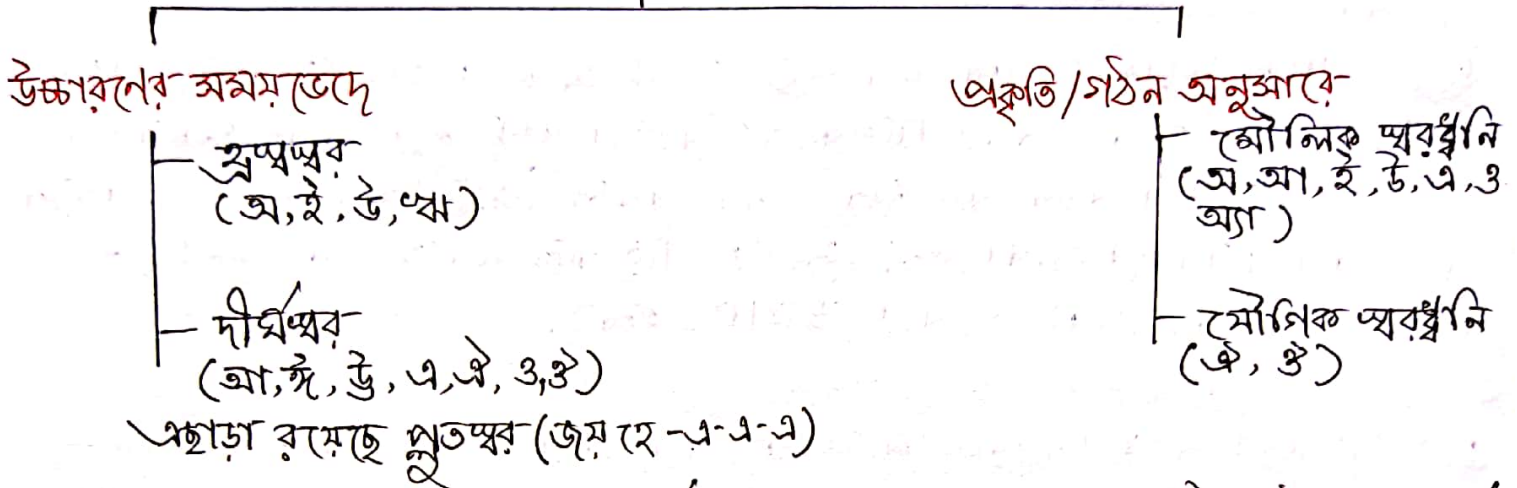 উচ্চারণের সময়ভেদে
হ্রস্বস্বর
(অ, ই, উ, ঋ)
দীর্ঘস্বর
(আ, ঈ, ঊ, এ, ঐ, ও, ঔ)
এছাড়া রয়েছে প্লুতস্বর (জয় হে -এ-এ-এ)
প্রকৃতি/গঠন অনুসারে
মৌলিক স্বরধ্বনি
(অ, আ, ই, উ, এ, ও
অ্যা)
যৌগিক স্বরধ্বনি
(ঐ, ঔ)